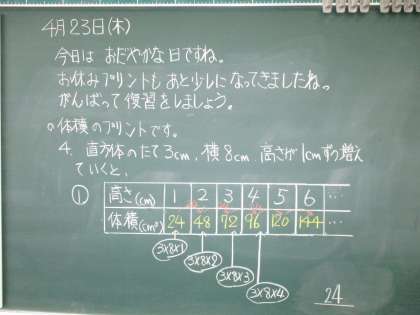 4月23日(木)
今日は おだやかな日ですね。
お休みプリントも あと少しになってきましたねっ
がんばって復習をしましょう。
○体積のプリントです。
4. 直方体のたて3cm、横8cm、高さが1cmずつ増え
ていくと、
① 高さ(cm) 1 2 3 4 5 6 …
体積(cm³) 24 48 72 96 120 144 …
3×8×1 3×8×2 3×8×3 3×8×4
24